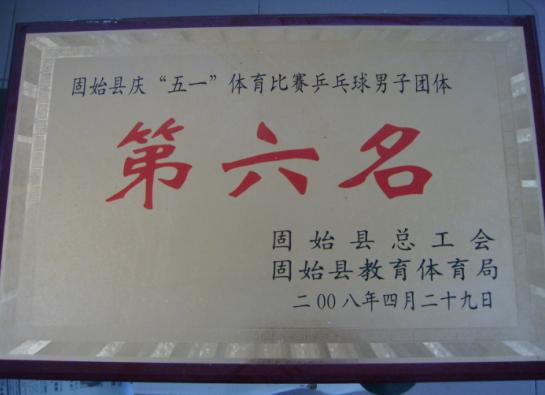 固始县庆“五一”体育比赛乒乓球男子团体
第六名
固始县总工会
固始县教育体育局
二00八年四月二十九日